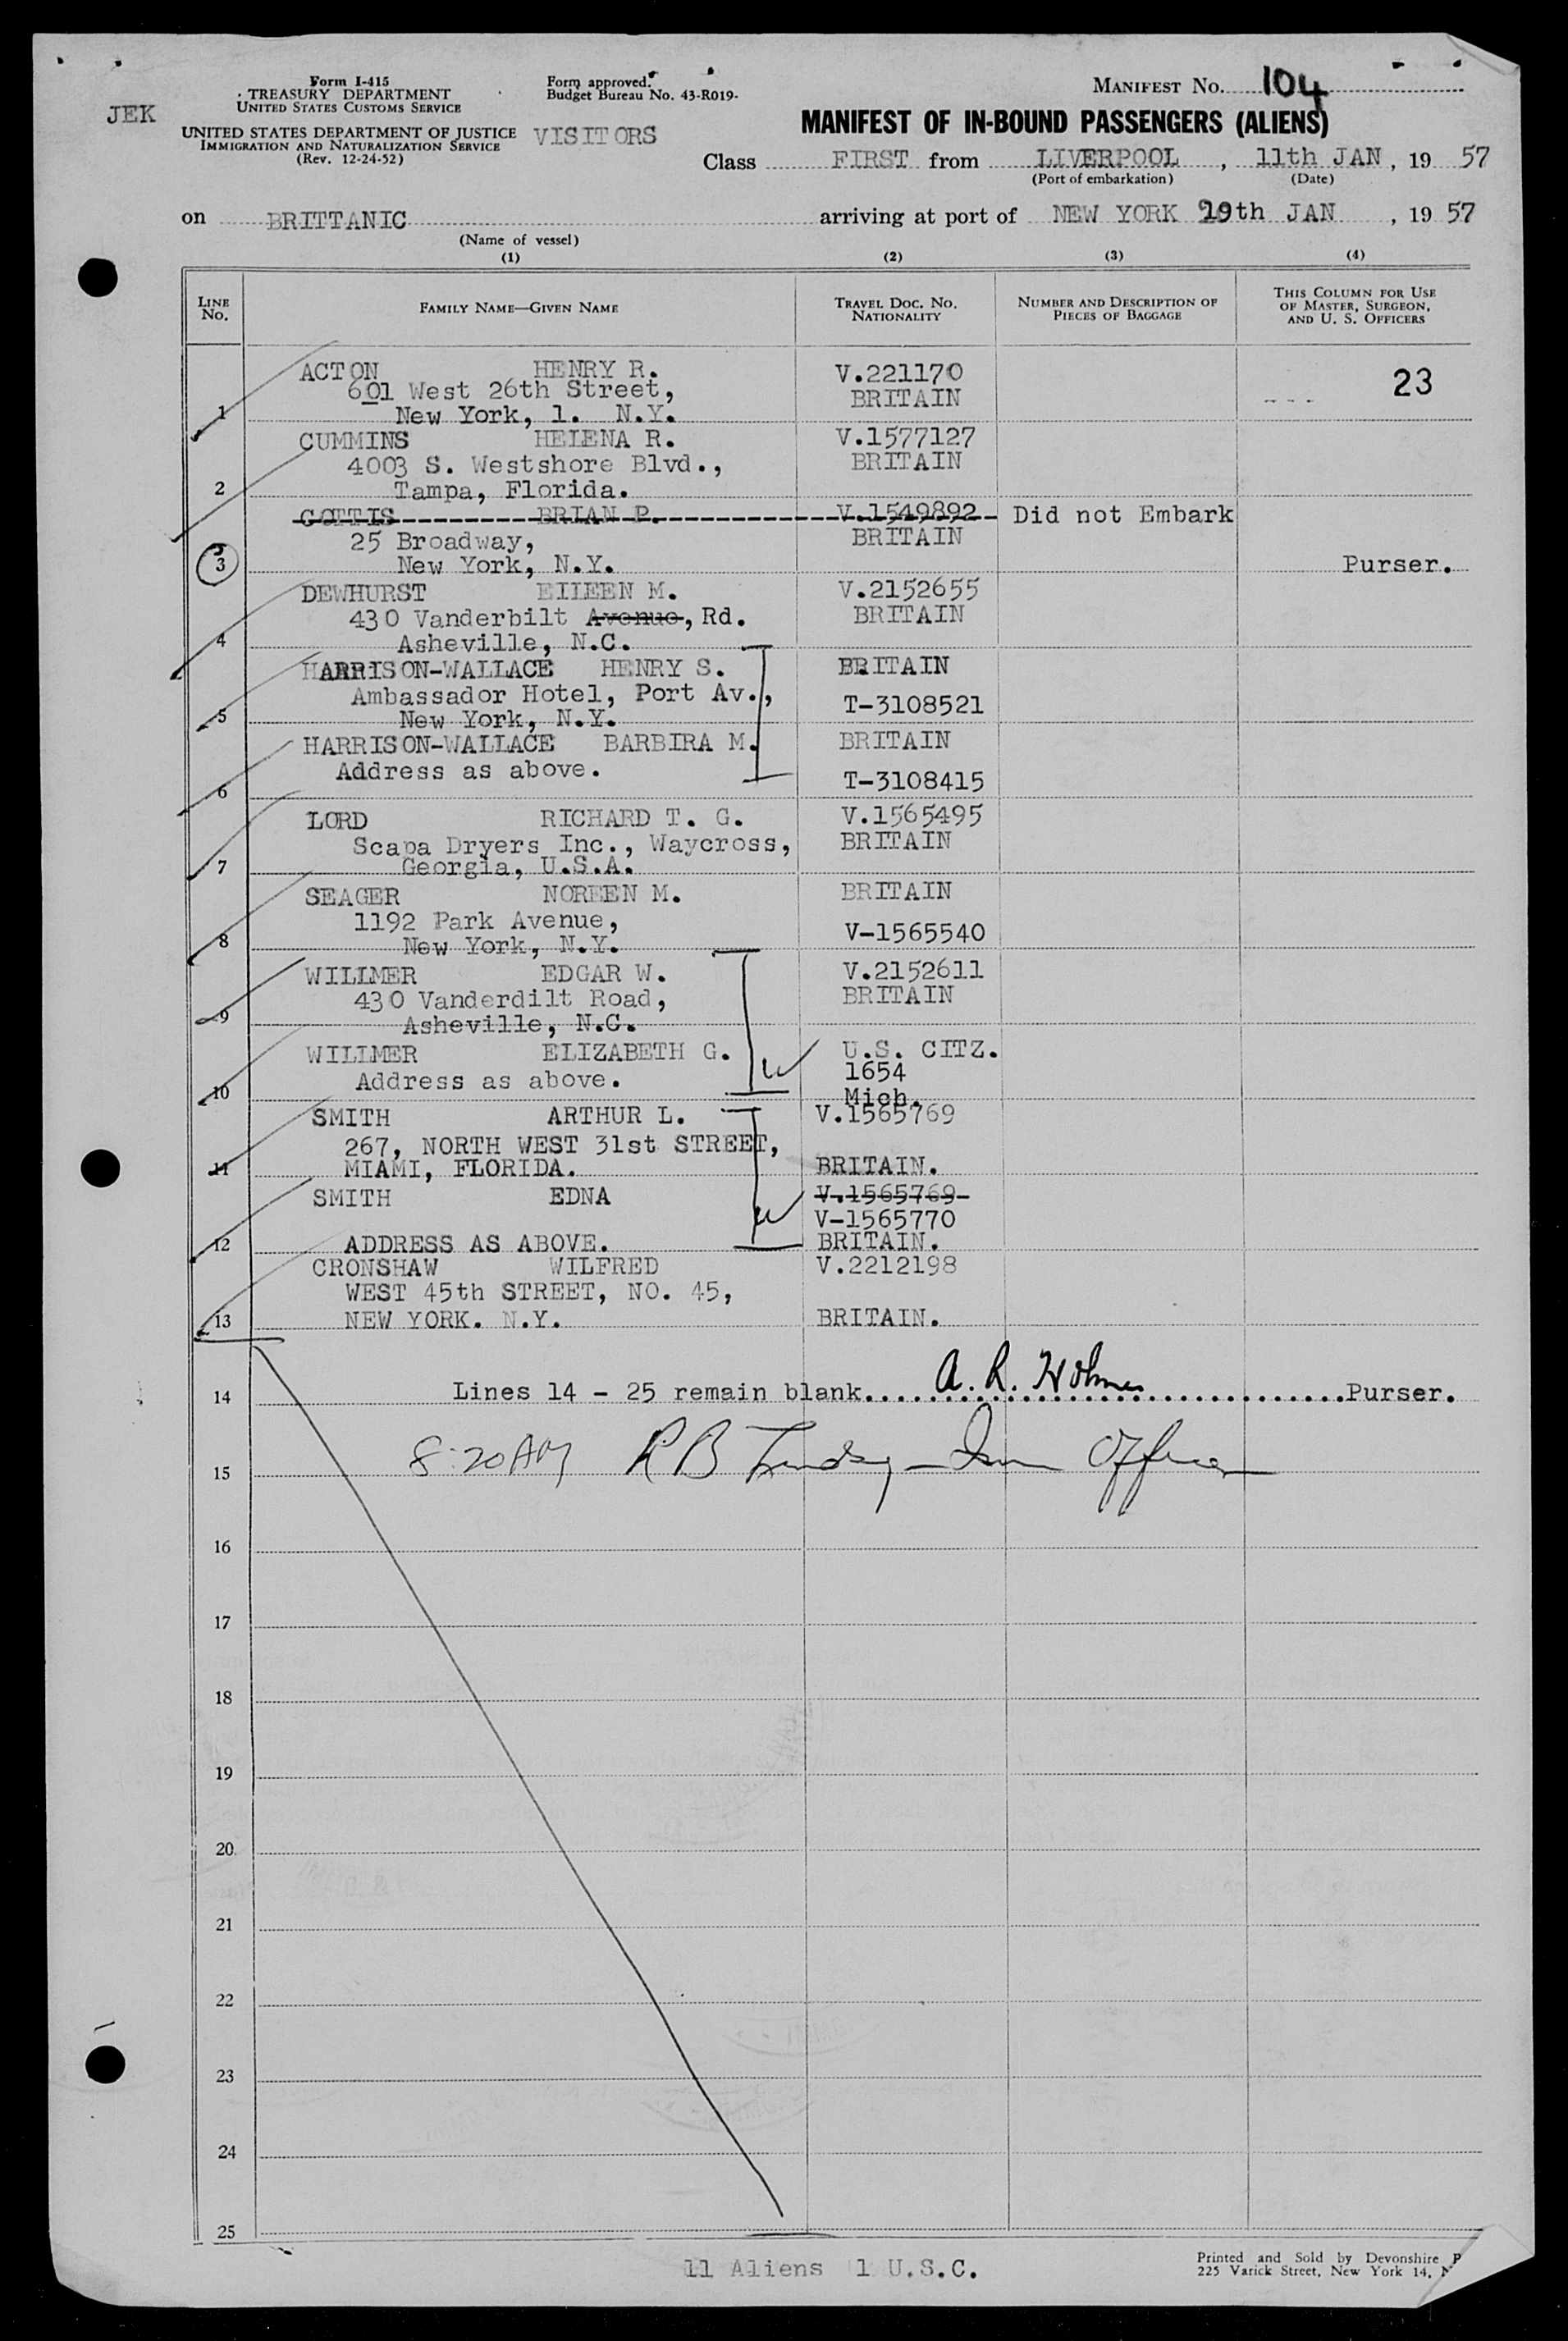 JEK
Form I-415
TREASURY DEPARTMENT
UNITED STATES CUSTOMS SERVICE
UNITED STATES DEPARTMENT OF JUSTICE
IMMIGRATION AND NATURALIZATION SERVICE
(Rev. 12-24-52)
Form approved.
Budget Bureau No. 43-R019-
VISITORS
MANIFEST No. 104
MANIFEST OF IN-BOUND PASSENGERS (ALIENS)
Class FIRST from LIVERPOOL , 11th JAN , 19 57
(Port of embarkation) (Date)
on BRITTANIC arriving at port of NEW YORK 19th JAN , 19 57
(Name of vessel)
(1) (2) (3) (4)
LINE No. FAMILY NAME—GIVEN NAME TRAVEL DOC. NO. NATIONALITY NUMBER AND DESCRIPTION OF PIECES OF BAGGAGE THIS COLUMN FOR USE OF MASTER, SURGEON, AND U. S. OFFICERS
ACTON HENRY R. V.221170 23
601 West 26th Street, BRITAIN
1 New York, 1. N.Y.
CUMMINS HELENA R. V.1577127
4003 S. Westshore Blvd., BRITAIN
2 Tampa, Florida.
COTTIS BRIAN P. V.1549892 Did not Embark
25 Broadway, BRITAIN
3 New York, N.Y. Purser.
DEWHURST EILEEN M. V.2152655
430 Vanderbilt Avenue, Rd. BRITAIN
4 Asheville, N.C.
HARRISON-WALLACE HENRY S. BRITAIN
Ambassador Hotel, Port Av., T-3108521
5 New York, N.Y.
HARRISON-WALLACE BARBIRA M. BRITAIN
Address as above. T-3108415
6
LORD RICHARD T. G. V.1565495
Scapa Dryers Inc., Waycross, BRITAIN
7 Georgia, U.S.A.
SEAGER NOREEN M. BRITAIN
1192 Park Avenue, V-1565540
8 New York, N.Y.
WILLMER EDGAR W. V.2152611
430 Vanderdilt Road, BRITAIN
9 Asheville, N.C.
WILLMER ELIZABETH G. U.S. CITZ.
Address as above. 1654
10 Mich.
SMITH ARTHUR L. V.1565769
267, NORTH WEST 31st STREET,
11 MIAMI, FLORIDA. BRITAIN.
SMITH EDNA V.1565769
V-1565770
12 ADDRESS AS ABOVE. BRITAIN.
CRONSHAW WILFRED V.2212198
WEST 45th STREET, NO. 45,
13 NEW YORK. N.Y. BRITAIN.
14 Lines 14 - 25 remain blank.... A. R. Holmes ....Purser.
15 8:20 AM R B Lindsay - Imm Officer
16
17
18
19
20
21
22
23
24
25
11 Aliens 1 U.S.C.
Printed and Sold by Devonshire
225 Varick Street, New York 14,